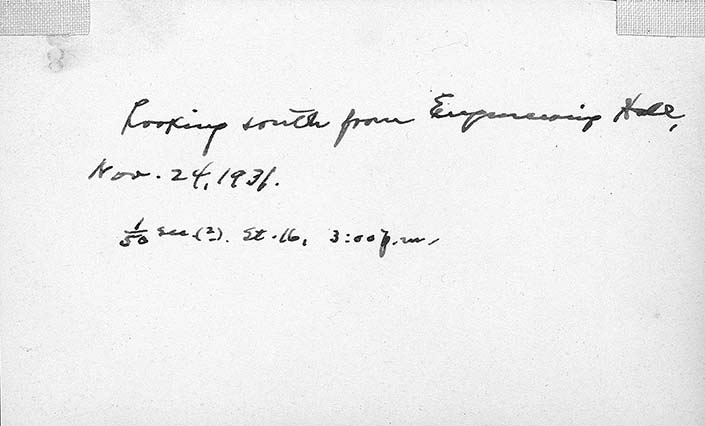 Looking south from Engineering Hall,
Nov. 24, 1931.
1/50 sec.(?). St. 16, 3:00 p.m.